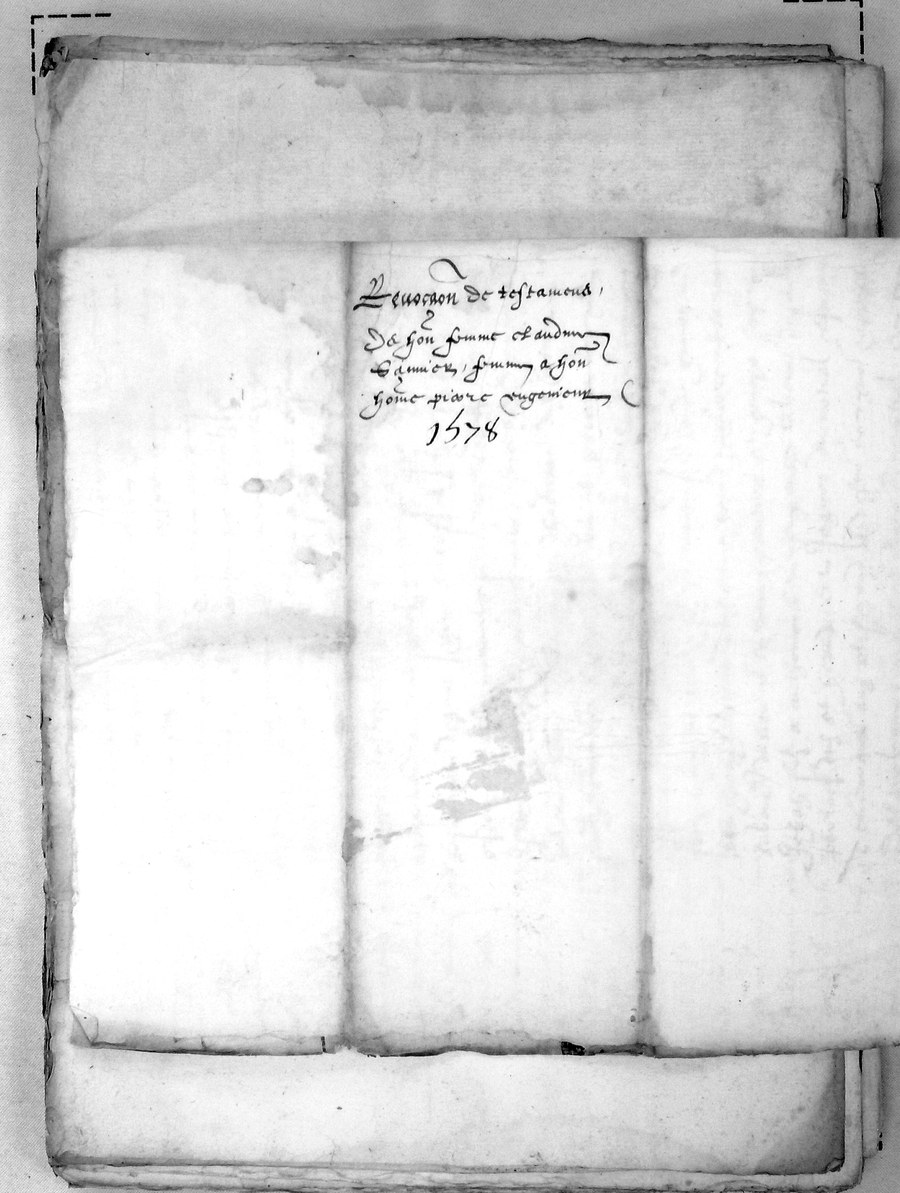 Revocaon de testament
De hon femme claudine
Sannier, femme a hon
home pierre eugenieur
1578